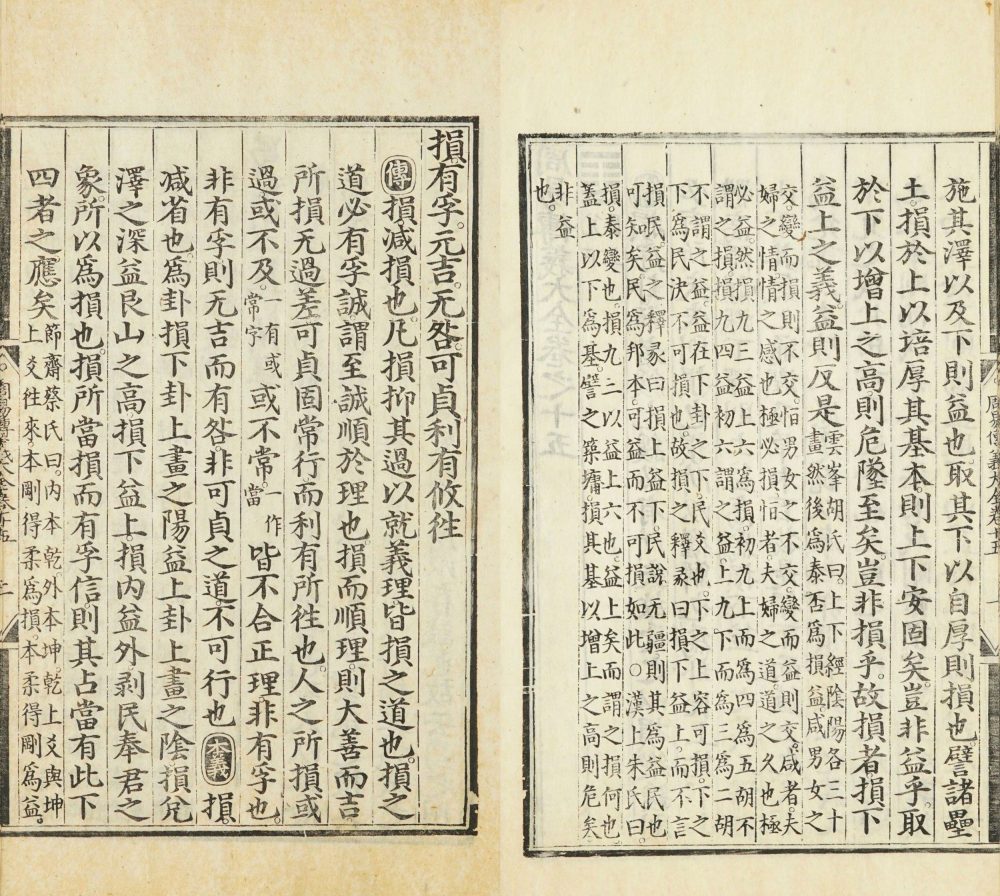 施其澤以及下則益也取其下以自厚則損也譬諸壘
土損於上以培厚其基本則上下安固矣豈非益乎取
於下以增上之高則危墜至矣豈非損乎故損者損下
益上之義益則反是
雲峯胡氏曰上下經陰陽各三十
畫然後爲泰否爲損益咸男女之
交變而損則不交恒男女之不交變而益則交咸者夫
婦之情情之感也極必損恒者夫婦之道道之久也極
必益然損九三益上六爲損初九上而爲四爲五胡不
謂之損損九四益初六謂之益上九下而爲三爲二胡
不謂之益益在下卦之下民爻也下之上容可損下之
下爲民決不可損也故損之釋彖曰損下益上而不言
損民益之釋彖曰損上益下民說无疆則其爲益民也
可知矣民爲邦本可益而不可損如此○漢上朱氏曰
損泰變也損九三以益上六也益上矣而謂之損何也
蓋上以下爲基譬之築墉損其基以增上之高則危矣
非益
也
損有孚元吉无咎可貞利有攸徃
傳損減損也凡損抑其過以就義理皆損之道也損之
道必有孚誠謂至誠順於理也損而順理則大善而吉
所損无過差可貞固常行而利有所徃也人之所損或
過或不及一有或常字或不常一作當皆不合正理非有孚也
非有孚則无吉而有咎非可貞之道不可行也本義損
減省也爲卦損下卦上畫之陽益上卦上畫之陰損兌
澤之深益艮山之高損下益上損內益外剥民奉君之
象所以爲損也損所當損而有孚信則其占當有此下
四者之應矣
節齋蔡氏曰內本乾外本坤乾上爻與坤
上爻徃來本剛得柔爲損本柔得剛爲益